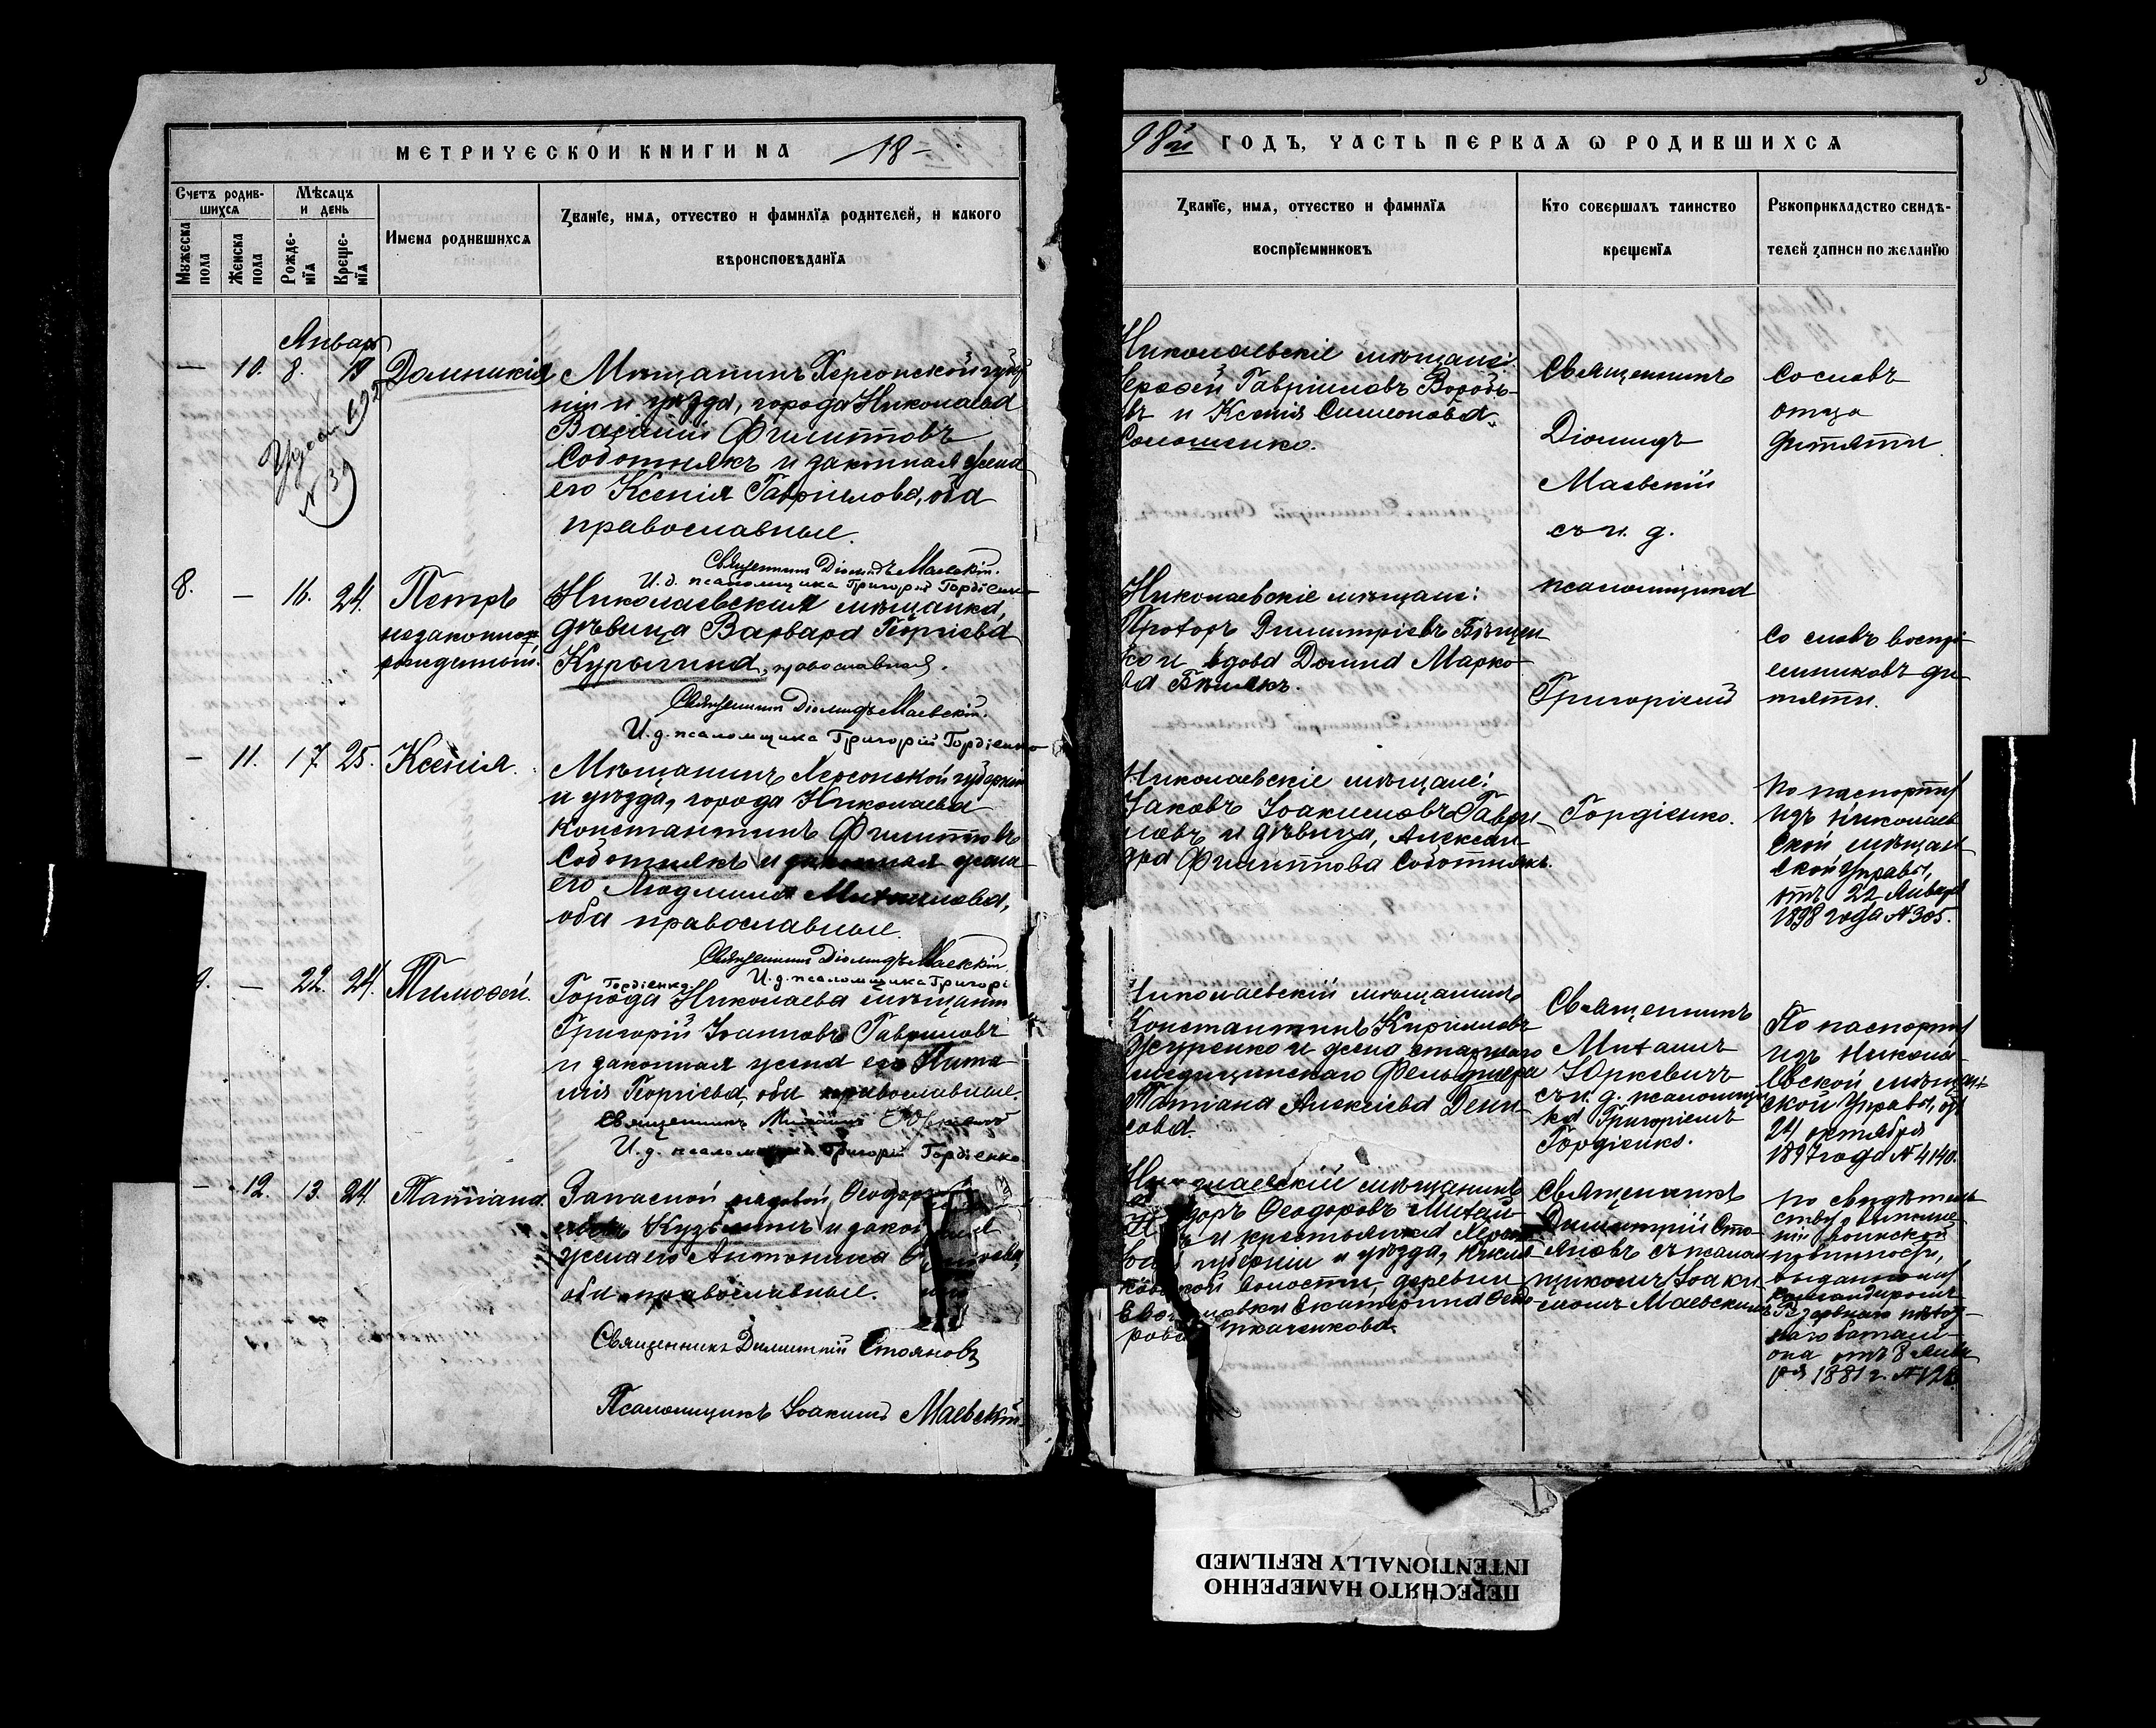 МЕТРИЧЕСКОЙ КНИГИ НА 18
98й ГОДЪ, ЧАСТЬ ПЕРВАЯ Ѡ РОДИВШИХСЯ
Счетъ родив-
шихся
Мѣсяцъ
и день
Мужеска
пола
Женска
пола
Рожде-
нїя
Креще-
нїя
Имена родившихся
Званїе, имя, отчество и фамилїя родителей, и какого
вѣроисповѣданїя
Званїе, имя, отчество и фамилїя
воспрїемниковъ
Кто совершалъ таинство
крещенїя
Рукоприкладство свидѣ-
телей записи по желанїю
Январь
— 10. 8. 19
Домникія
№ 39
Мѣщанинъ Херсонской губер
ніи и уѣзда, города Николаева
Василій Филипповъ
Соботнякъ и законная жена
его Ксенія Гавріилова, оба
православные.
Священникъ Діомидъ Маевскій.
И. д. псаломщика Григорій Гордіенко
Николаевскіе мѣщане:
Гавріиловъ Воробь-
въ и Ксенія Симеонова
Священникъ
Діомидъ
Маевскій
съ и. д.
псаломщика
Григоріемъ
Гордіенко.
Со словъ
отца
дитяти.
8. — 16. 24.
Петръ
незаконно-
рожденный.
Николаевская мѣщанка,
дѣвица Варвара Георгіева
Курылина, православная.
Священникъ Діомидъ Маевскій.
И. д. псаломщика Григорій Гордіенко
Николаевскіе мѣщане:
Димитріевъ
ко и вдова Домна Марко-
ва Бѣлякъ.
Со словъ воспрі-
емниковъ ди-
тяти.
— 11. 17. 25.
Ксенія.
Мѣщанинъ Херсонской губерніи
и уѣзда, города Николаева
Константинъ Филипповъ
Соботнякъ и законная жена
его Людмила Михаилова,
оба православные.
Священникъ Діомидъ Маевскій
И. д. псаломщика Григорій
Гордіенко.
Николаевскіе мѣщане:
Іаковъ Іоакимовъ Гаври-
ловъ и дѣвица, Алексан-
дра Филиппова Соботнякъ.
По паспорту
изъ Николаев
ской мѣщан
ской Управы,
отъ 22 Января
1898 года № 305.
9. — 22. 24.
Тимоѳей.
Города Николаева мѣщанинъ
Григорій Іоанновъ Гавриловъ
и законная жена его
Георгіева, оба православные.
Священникъ Михаилъ Юркевичъ
И. д. псаломщика Григорій Гордіенко.
Николаевскій мѣщанинъ
Константинъ Кирилловъ
Журенко и жена старшаго
медицинскаго Фельдшера
Татіана Алексіева Дени-
сова.
Священникъ
Михаилъ
Юркевичъ
съ и. д. псаломщи
ка Григоріемъ
Гордіенко.
По паспорту
изъ Никола-
евской мѣщан
ской Управы, отъ
24 октября
1897 года № 4140.
— 12. 13. 24
Татіана.
Запасной рядовой Ѳеодоръ
Кузьминъ и законная
жена его Антонина
оба православные.
Священникъ Димитрій Стояновъ
Псаломщикъ Іоакимъ Маевскій
Николаевскій мѣщанинъ
Ѳеодоровъ
и крестьянка Херсон
губерніи и уѣзда,
волости, деревни
Екатерина Ѳеодо-
рова
Священникъ
Димитрій Сто-
яновъ съ псалом
щикомъ Іоаки
момъ Маевскимъ
По свидѣтель
ству о выполне-
ніи воинской
повинности,
выданному
командиромъ
Резервнаго пѣхот
наго баталі-
она отъ 8 Янва
ря 1881 г. № 128.
ПЕРЕСНЯТО НАМЕРЕННО
INTENTIONALLY REFILMED